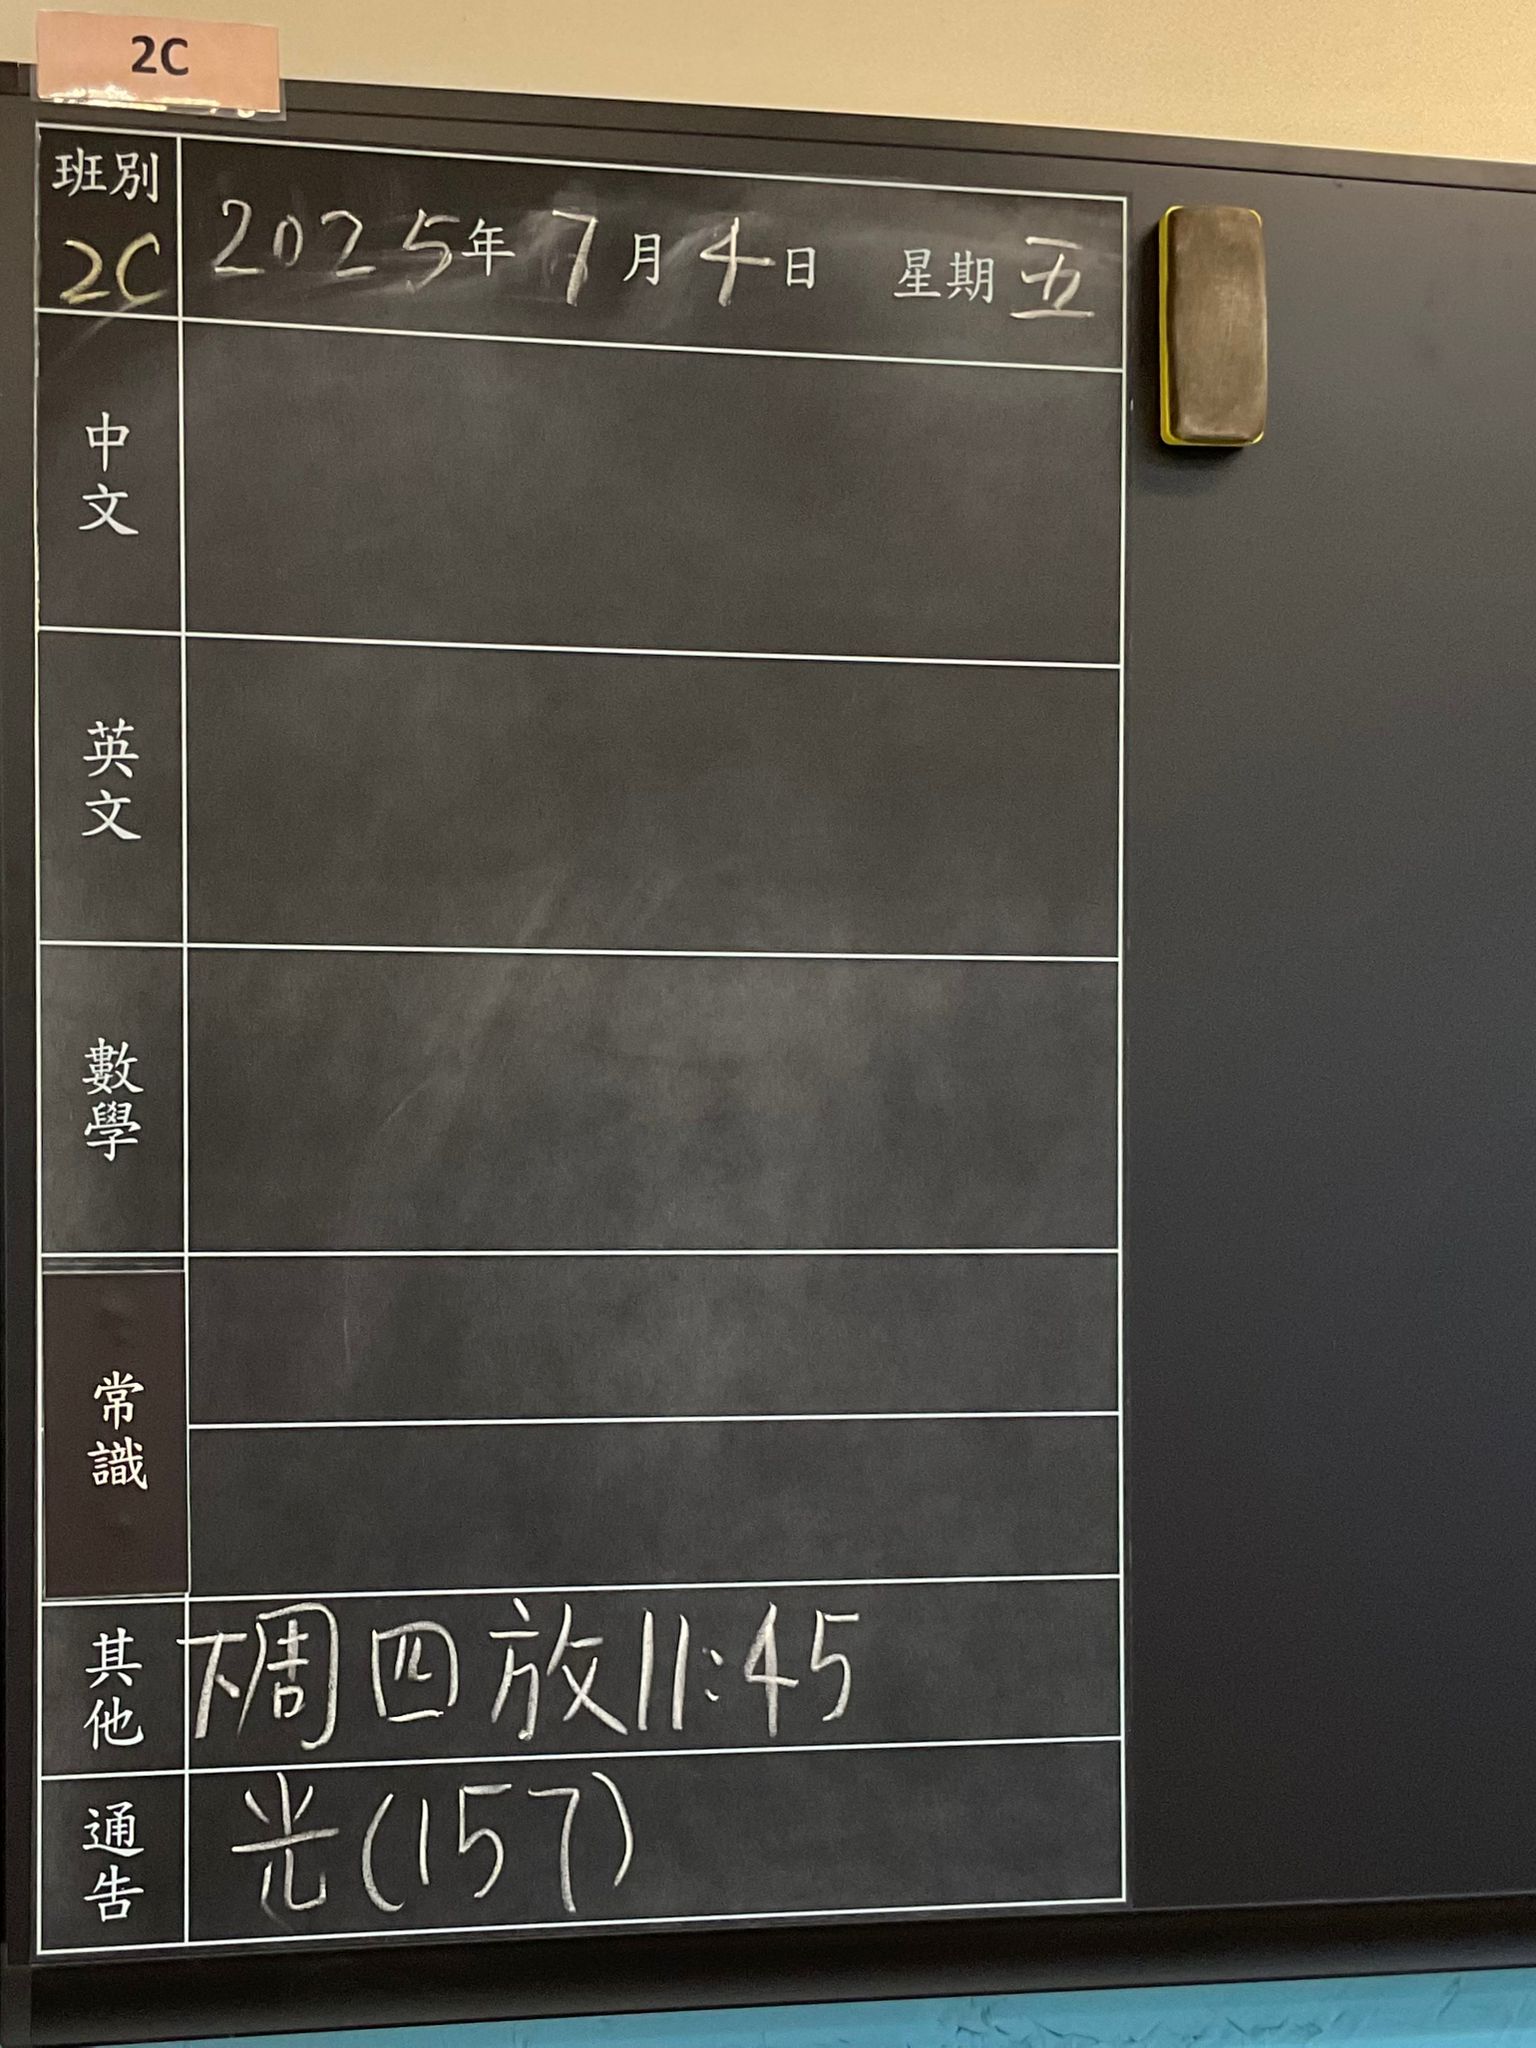 2C
班別
2C
2025年7月4日 星期五
中文
英文
數學
常識
其他
下周四放11:45
通告
光(157)